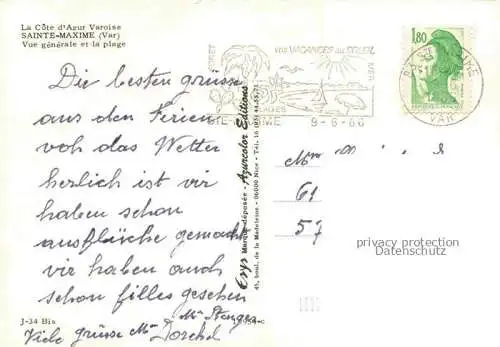 La Côte d'Azur Varoise
SAINTE-MAXIME (Var)
Vue générale et la plage
Die besten grüsse
aus den Ferien
voh das Wetter
herlich ist vir
haben schon
ausflüche gemacht
vir haben auch
schon filles gesehen
Mme Stenger
Viele grüsse Mme Dorchel
J-34 Bis
Erys Marque déposée - Azurcolor Editions
45, boul. de la Madeleine - 06000 Nice - Tél. 16 (93) 44.53.71
FORET
MER
VOS VACANCES AU SOLEIL
STE-MAXIME
9-6-86
1,80
VAR
Mme
61
57
privacy protection
Datenschutz